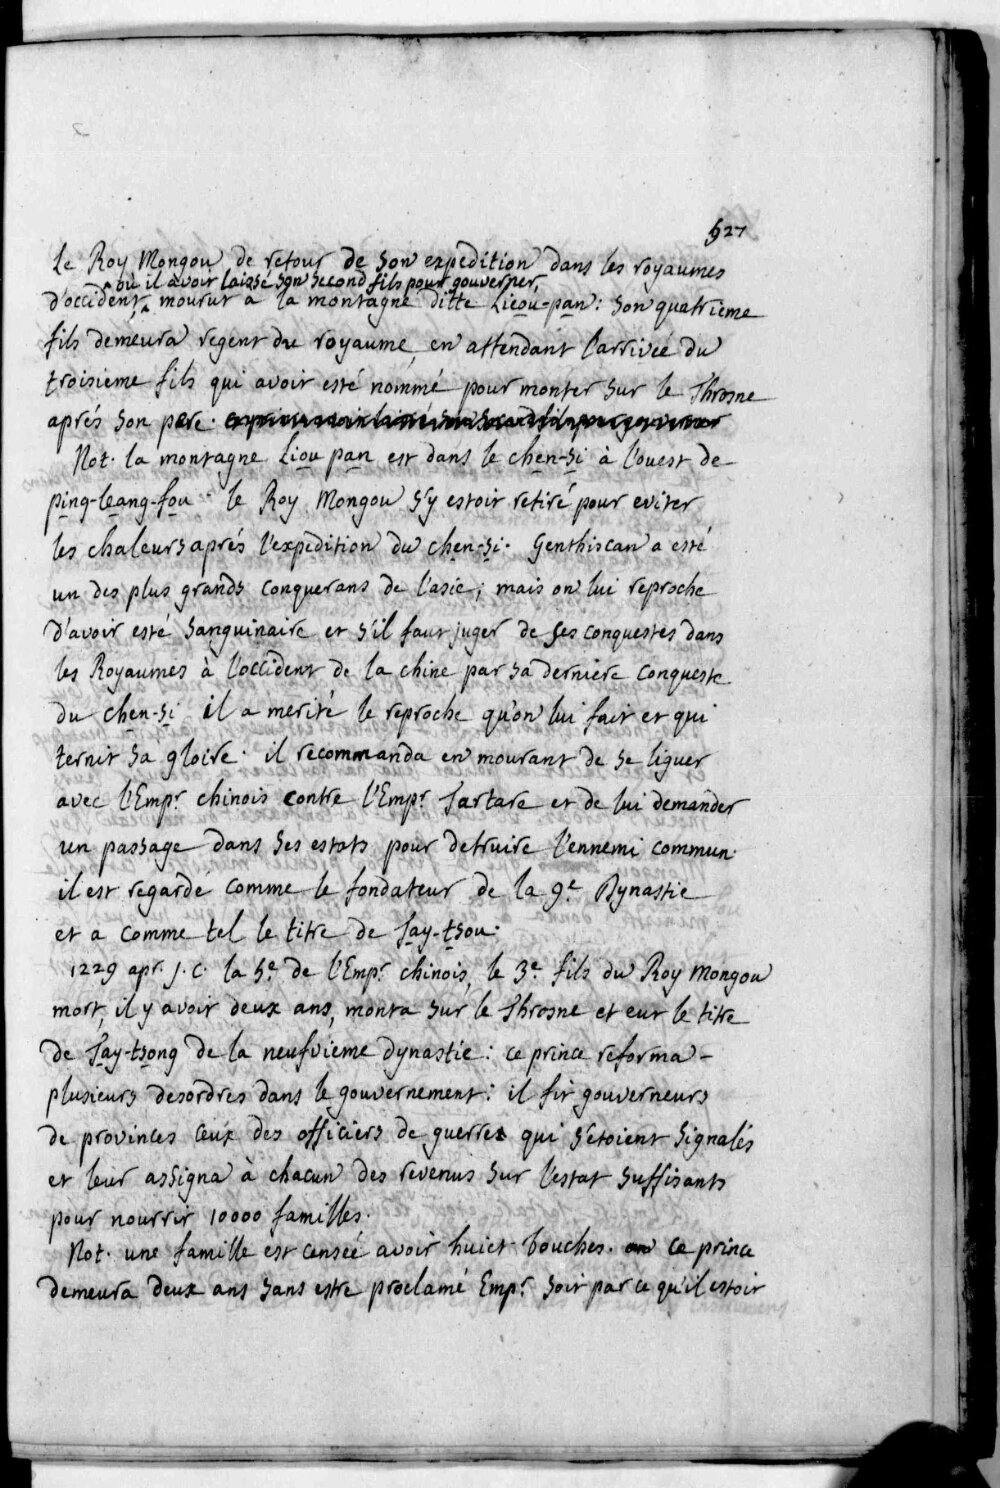 527
Le Roy Mongou de retour de son expedition dans les royaumes
où il avoit laissé son second fils pour gouverner,
d'occident, mourut a la montagne ditte Lieou-pan: son quatrieme
fils demeura regent du royaume en attendant l'arrivée du
troisieme fils qui avoit esté nommé pour monter sur le Throsne
aprés son pere.
Not. la montagne Liou pan est dans le chen-si à l'ouest de
ping-leang-fou le Roy Mongou s'y estoit retiré pour eviter
les chaleurs aprés l'expedition du chen-si. Genthiscan a esté
un des plus grands conquerans de l'asie; mais on lui reproche
d'avoir esté sanguinaire et s'il faut juger de ses conquestes dans
les Royaumes à l'occident de la chine par sa derniere conqueste
du chen-si il a merité le reproche qu'on lui fait et qui
ternit sa gloire. il recommanda en mourant de se liguer
avec l'Empr. chinois contre l'Empr. Tartare et de lui demander
un passage dans ses estats pour detruire l'ennemi commun.
il est regardé comme le fondateur de la 9e Dynastie
et a comme tel le titre de Tay-tsou.
1229 apr. J. C. la 5e de l'Empr. chinois, le 3e fils du Roy Mongou
mort, il y avoit deux ans, monta sur le Throsne et eut le titre
de Tay-tsong de la neufvieme dynastie: ce prince reforma
plusieurs desordres dans le gouvernement: il fit gouverneurs
de provinces ceux des officiers de guerre qui s'etoient signalés
et leur assigna à chacun des revenus sur l'estat suffisants
pour nourrir 10000 familles.
Not. une famille est censeé avoir huict bouches. ce prince
demeura deux ans sans estre proclamé Empr. soit par ce qu'il estoit